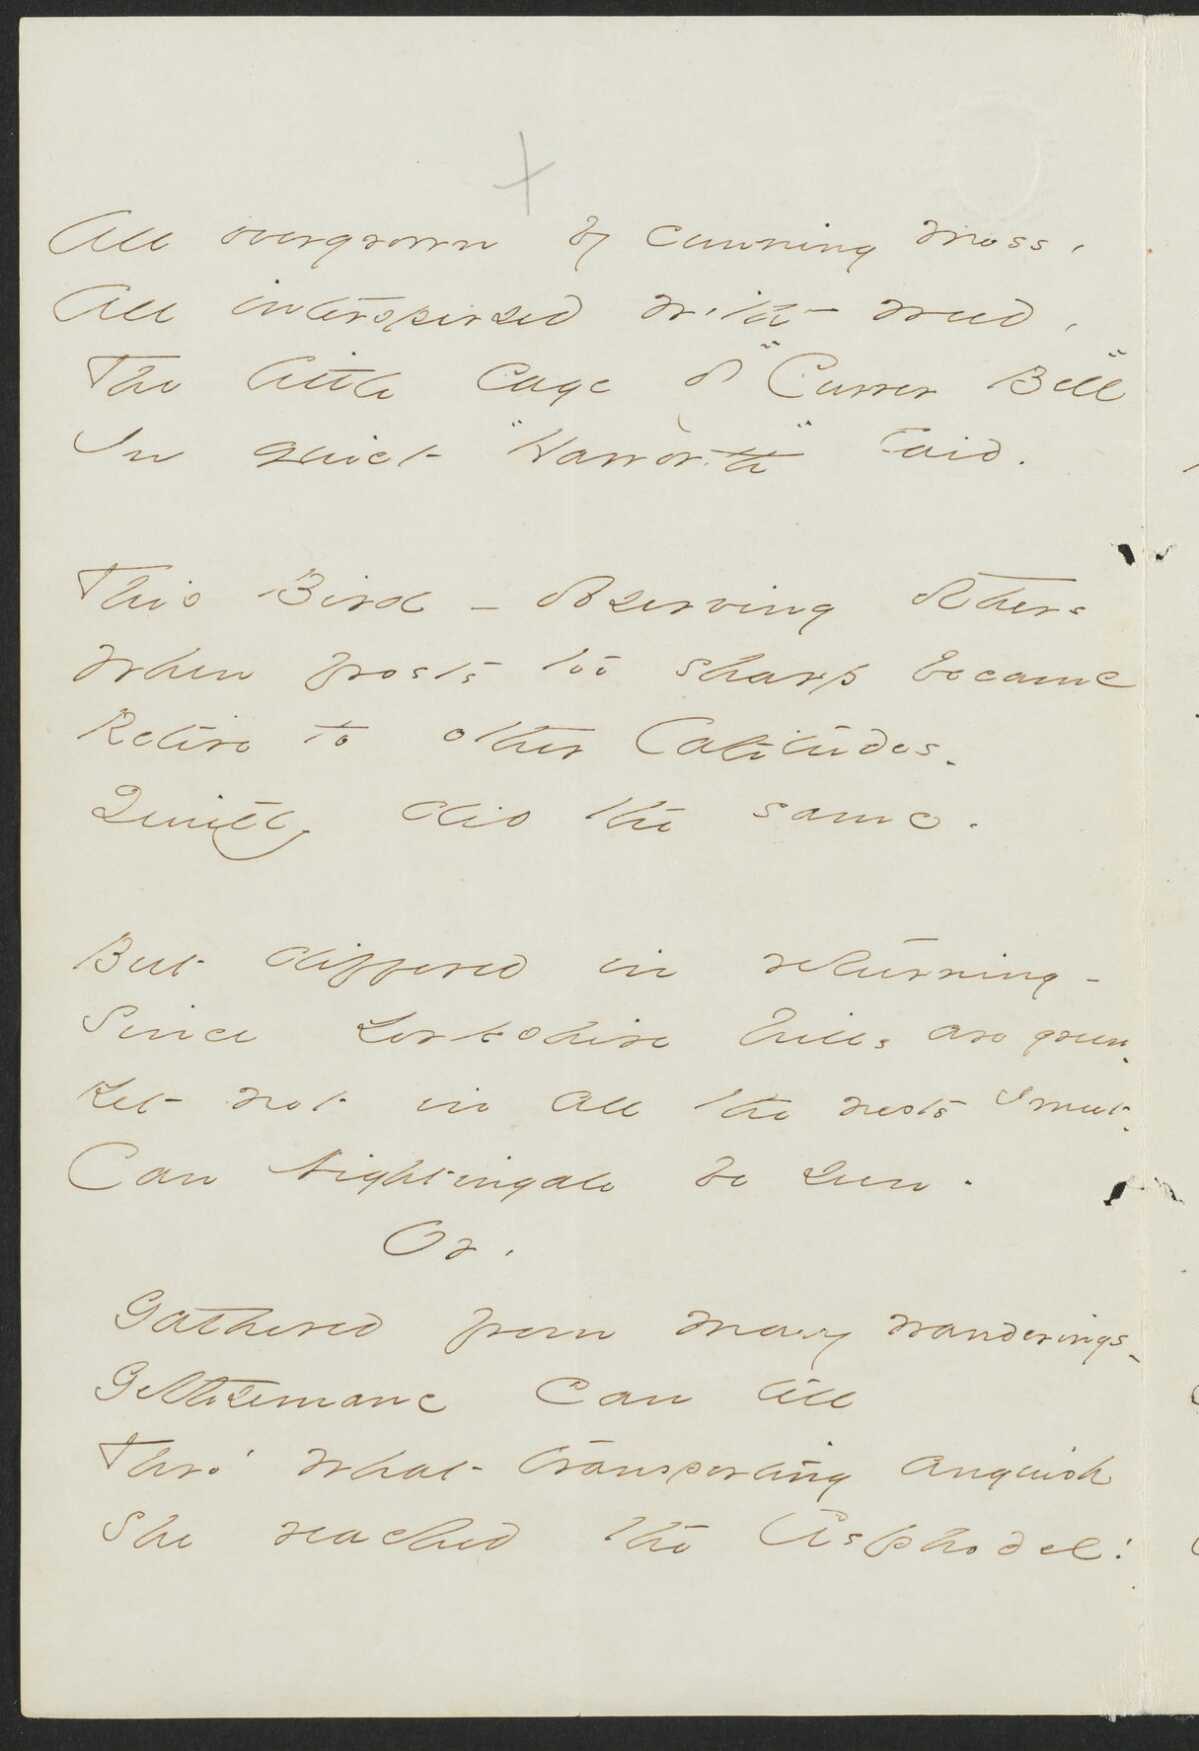 All overgrown by cunning moss,
All interspersed with weed,
The little cage of "Currer Bell"
In quiet "Haworth" laid.
This Bird - observing others
When frosts too sharp became
Retire to other latitudes -
Quietly did the same.
But differed in returning -
Since Yorkshire hills are green -
Yet not in all the nests I meet -
Can Nightingale be seen.
Or,
Gathered from many wanderings -
Gethsemane can tell
Thro' what transporting anguish
She reached the Asphodel!